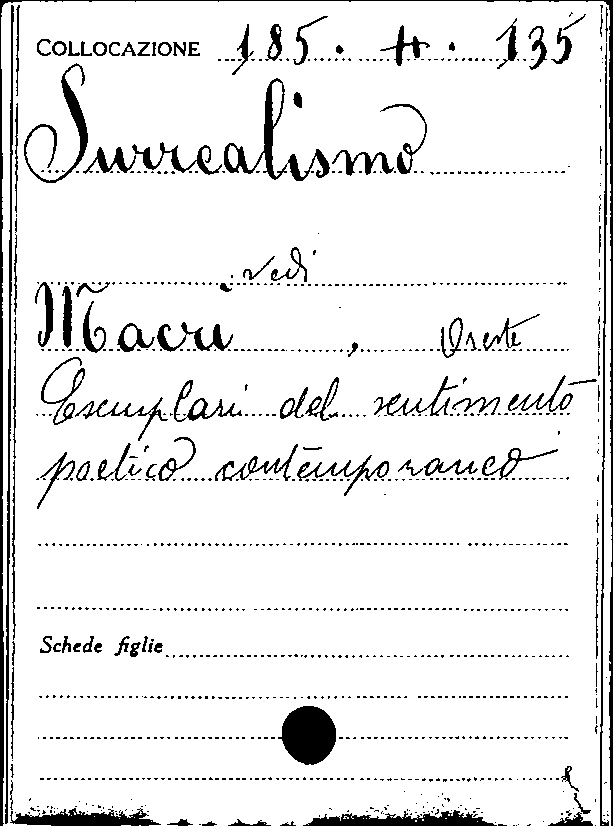 COLLOCAZIONE 185. H. 135
Surrealismo
vedi
Macrì, Oreste
Esemplari del sentimento
poetico contemporaneo
Schede figlie